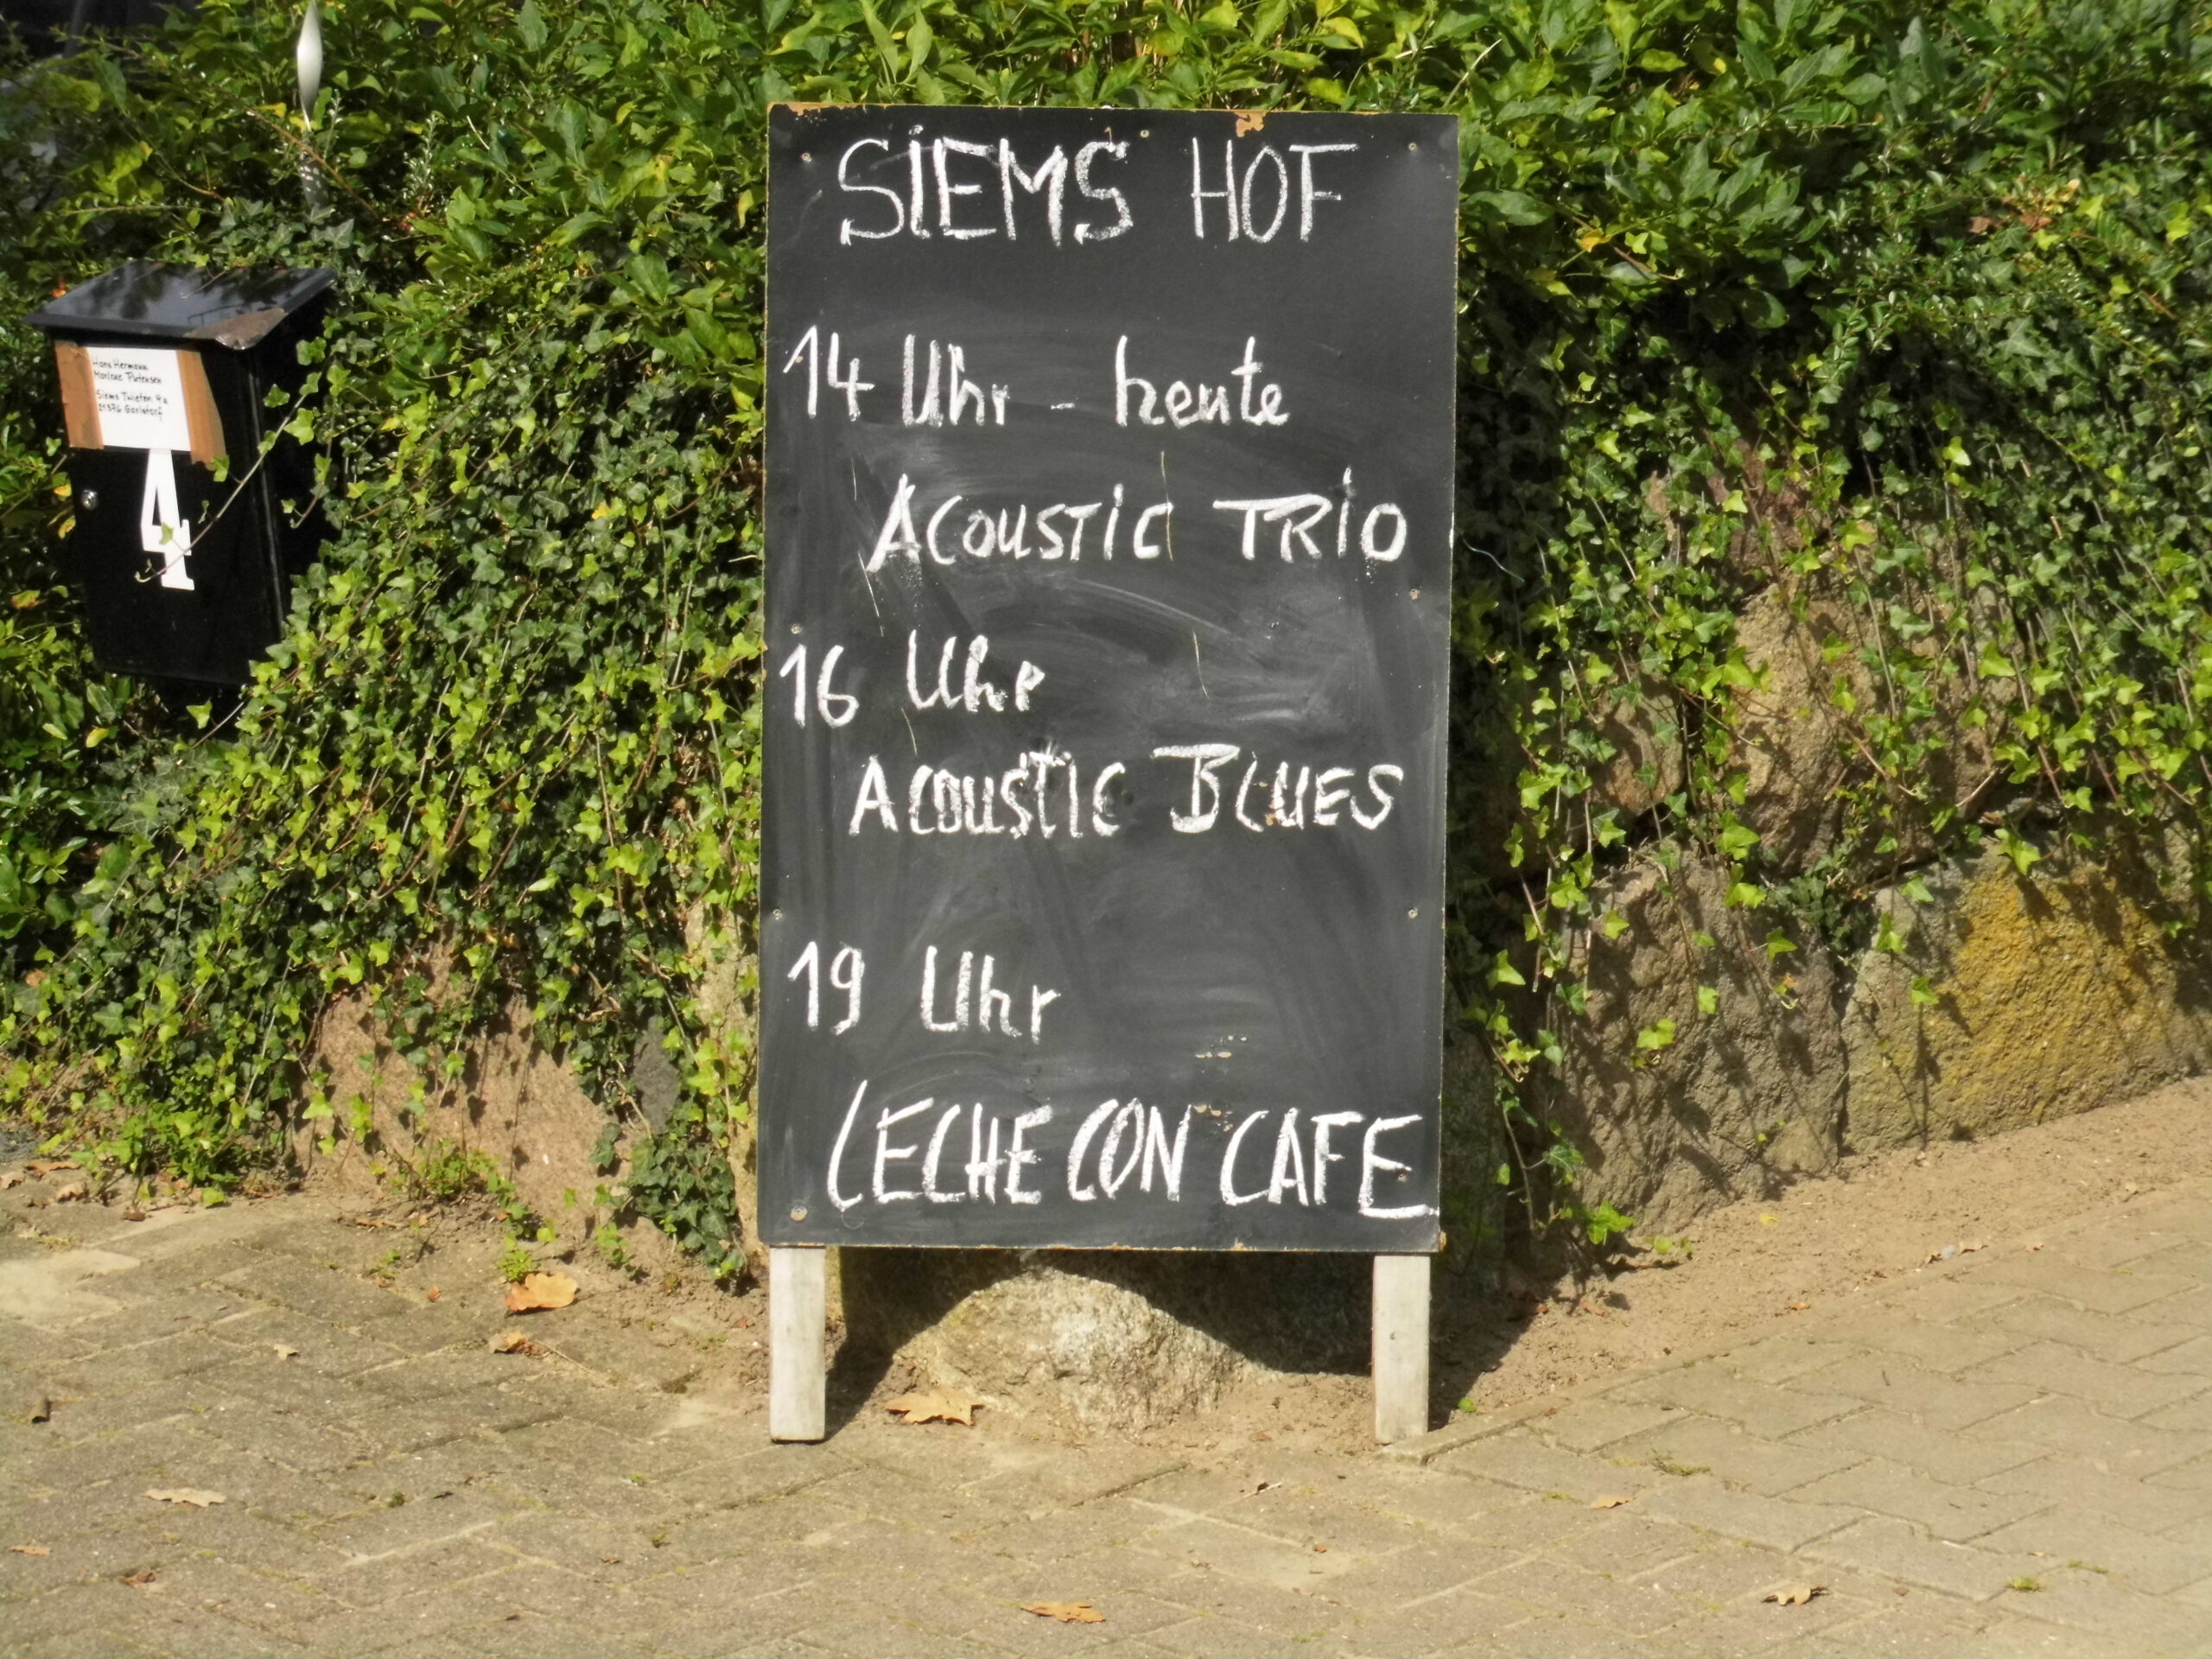 SiEMS HOF
14 Uhr - heute
ACOUSTIC TRiO
16 Uhr
ACOUSTIC BLUES
19 Uhr
LECHE CON CAFE
Hans Hermann
Marlene
Siems Twieten 4a
21376 Garlstorf
4